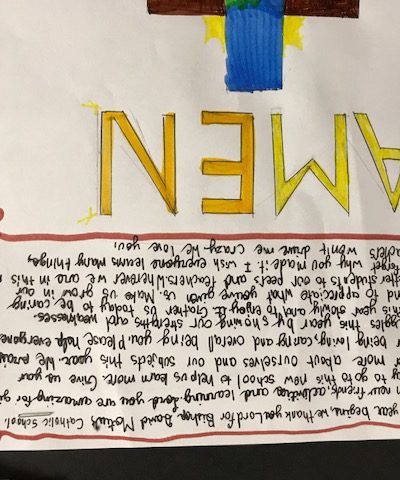 year begins, we thank you Lord for Bishop David Motiuk Catholic School.
new friends, activities and learning. Lord you are amazing for gi
to go to this new school to help us learn more. Give us your
more about ourselves and our subjects this year. We
being loving, caring and overall being you. Please help everyone
ggles this year by showing our strengths and weaknesses.
this year slowly and to enjoy it. Gather us today to be caring
nd to appreciate what you've given us. Make us grow in our
students to our peers and teachers wherever we are in this
forget why you made it. I wish everyone learns many things,
won't drive me crazy. We love you,
AMEN